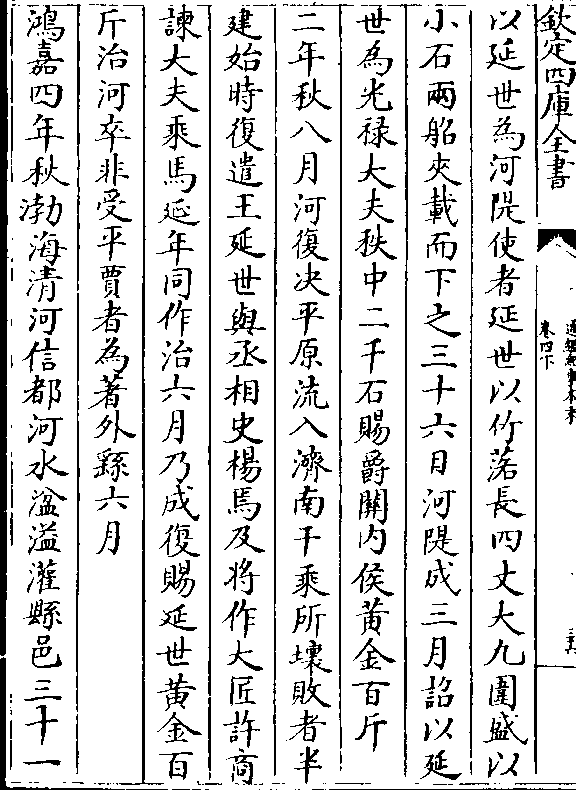 欽定四庫全書
卷四下
以延世為河隄使者延世以竹落長四丈大九圍盛以
小石兩船夾載而下之三十六日河隄成三月詔以延
世為光禄大夫秩中二千石賜爵關内侯黄金百斤
二年秋八月河復決平原流入濟南千乘所壞敗者半
建始時復遣王延世與丞相史楊焉及將作大匠許商
諫大夫乘馬延年同作治六月乃成復賜延世黄金百
斤治河卒非受平賈者為著外繇六月
鴻嘉四年秋渤海清河信都河水湓溢灌縣邑三十一